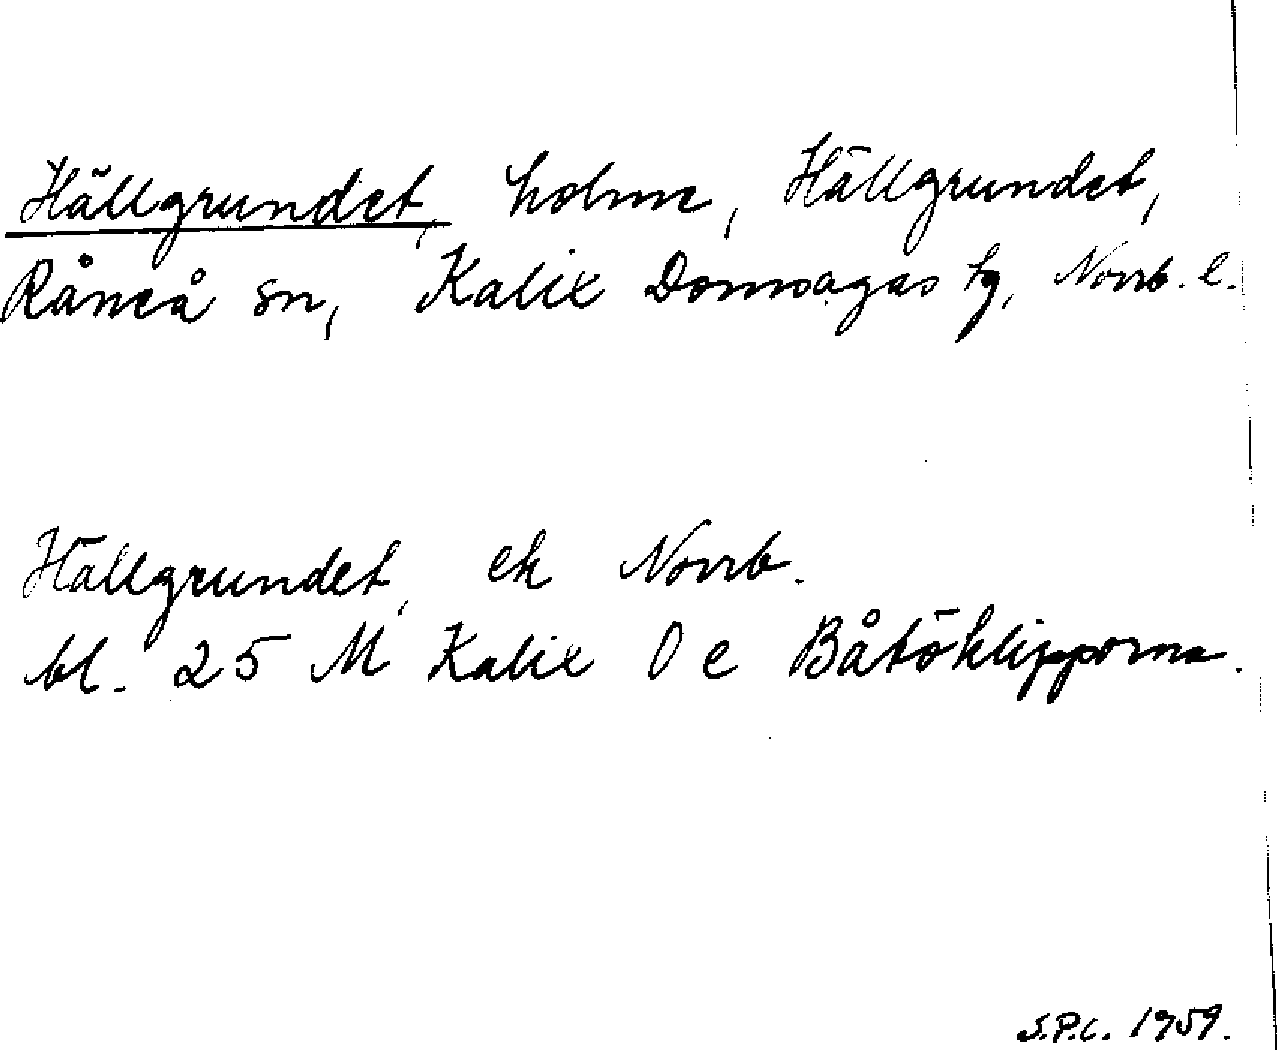 Hällgrundet, holme, Hällgrundet,
Råneå sn, Kalix Domsagas tg, Norrb. l.
Hällgrundet, ek Norrb.
bl. 25 M Kalix O e Båtöklipporna.
S.P.C. 1959.